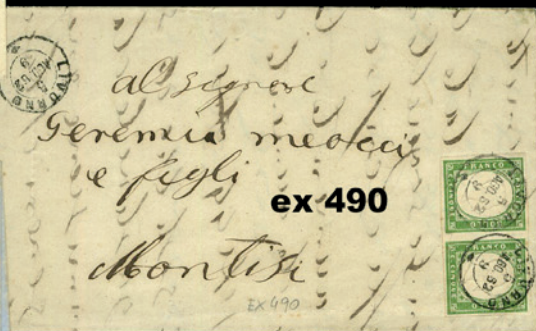 LIVORNO
5
AGO 62
al Signore
Geremia meocci
e figli
ex 490
Montisi
EX 490
FRANCO
LIVORNO
5
AGO 62
FRANCO
LIVORNO
5
AGO 62